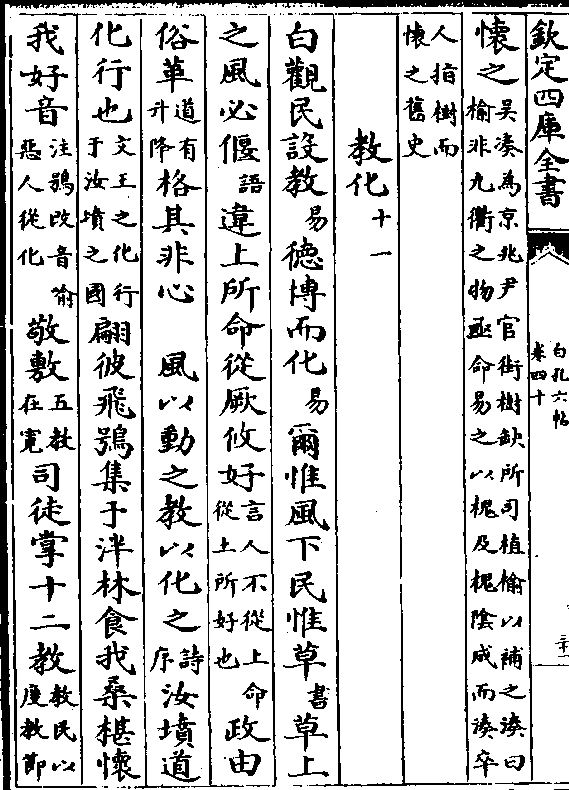 欽定四庫全書
白孔六帖
卷四十
三十一
懷之吳湊為京兆尹官街樹缺所司植榆以補之湊曰榆非九衢之物亟命易之以槐及槐陰成而湊卒
人指樹而懷之舊史
教化十一
白觀民設教易德博而化易爾惟風下民惟草書草上
之風必偃語違上所命從厥攸好言人不從上命從上所好也政由
俗革道有升降格其非心　風以動之教以化之詩序汝墳道
化行也文王之化行于汝墳之國翩彼飛鴞集于泮林食我桑椹懷
我好音注鴞改音喻惡人從化敬敷五教在寛司徒掌十二教教民以度教節